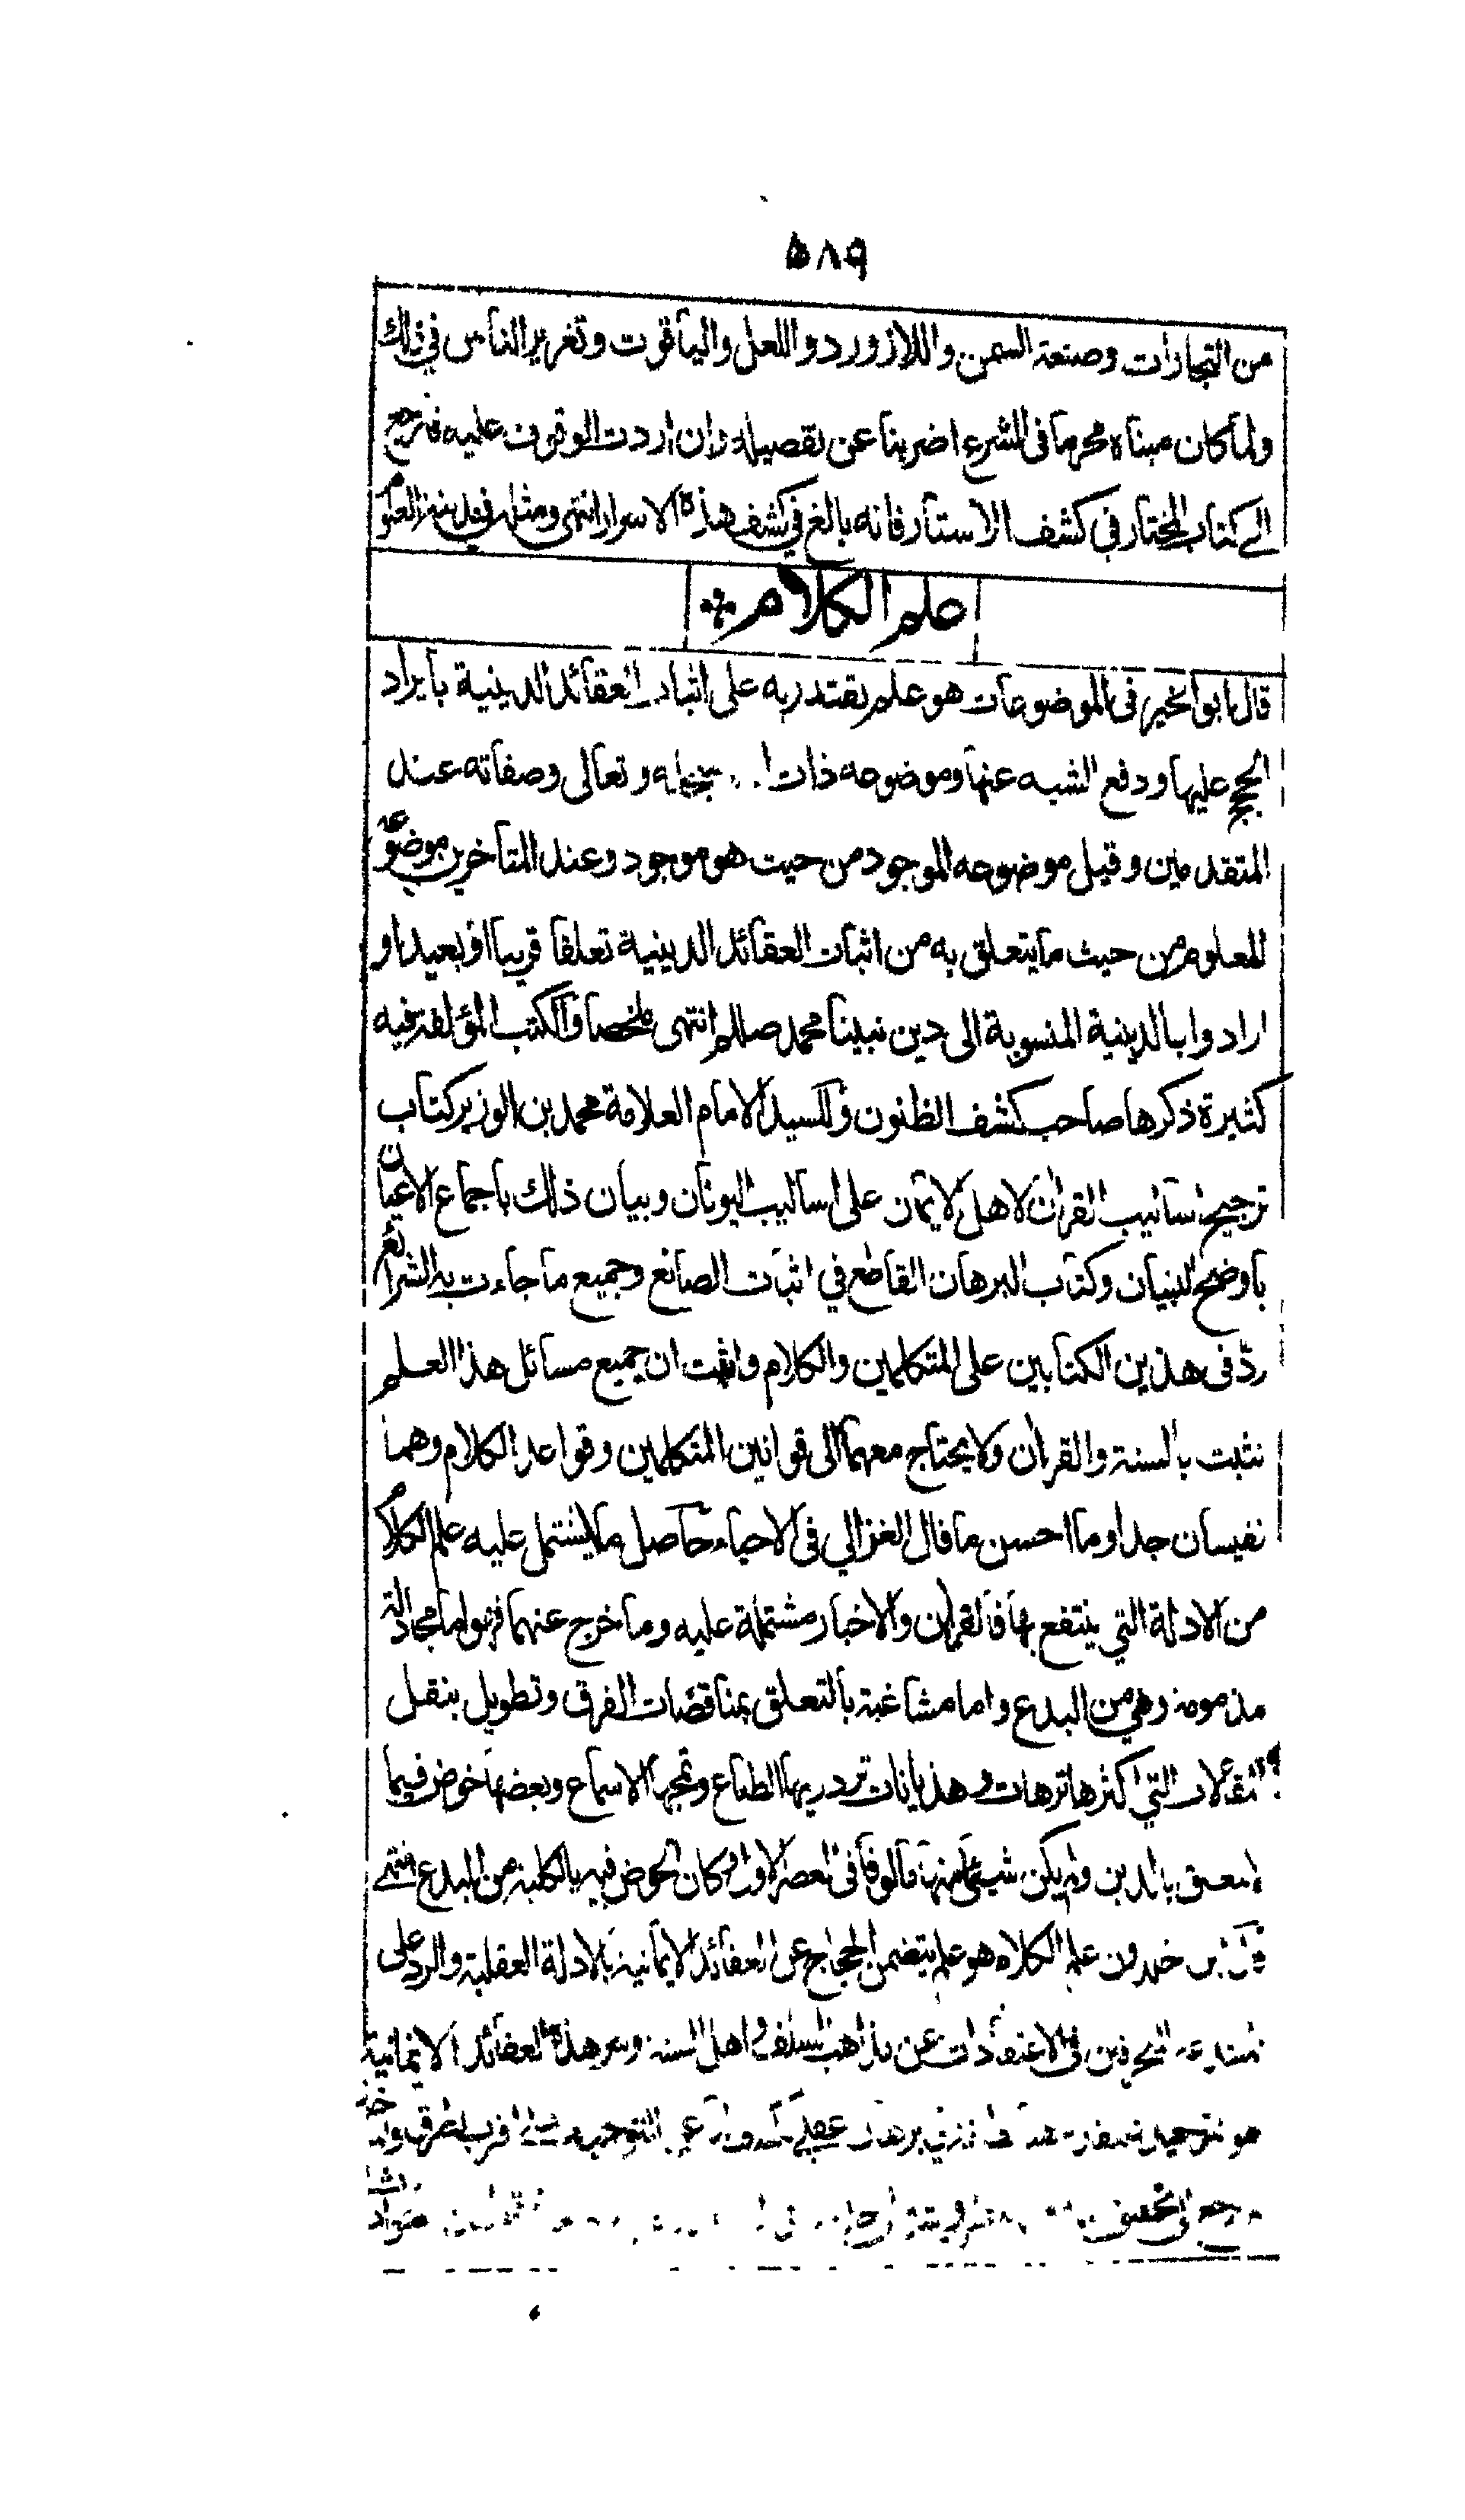 ٥٨٩
من التجارات وصنعة السمن واللازورد واللعل والياقوت وتغرير الناس في ذلك
ولما كان مبناه محرما في الشرع اضربنا عن تفصيله وان اردت الوقوف عليه فارجع
الى كتاب المختار في كشف الاستار فانه بالغ في كشف هذه الاسرار انتهى ومثله في مدينة العلوم
علم الكلام
قال ابو الخير في الموضوعات هو علم يقتدر به على اثبات العقائد الدينية بايراد
الحجج عليها ودفع الشبه عنها وموضوعه ذات سبحانه وتعالى وصفاته عند
المتقدمين وقيل موضوعه الموجود من حيث هو موجود وعند المتأخرين موضوعه
المعلوم من حيث ما يتعلق به من اثبات العقائد الدينية تعلقا قريبا او بعيدا و
ارادوا بالدينية المنسوبة الى دين نبينا محمد صللم انتهى ملخصا والكتب المؤلفة فيه
كثيرة ذكرها صاحب كشف الظنون وللسيد الامام العلامة محمد بن الوزير كتاب
ترجيح اساليب القران لاهل الايمان على اساليب اليونان وبيان ذلك باجماع الاعيان
باوضح التبيان وكتاب البرهان القاطع في اثبات الصانع وجميع ما جاءت به الشرائع
ردّ في هذين الكتابين على المتكلمين والكلام واثبت ان جميع مسائل هذا العلم
تثبت بالسنة والقران ولا يحتاج معهما الى قوانين المتكلمين وقواعد الكلام وهما
نفيسان جدا وما احسن ما قال الغزالي في الاحياء حاصل ما يشتمل عليه علم الكلام
من الادلة التي ينتفع بها فالقران والاخبار مشتملة عليه وما خرج عنهما فهو اما مجادلة
مذمومة وهي من البدع واما مشاغبة بالتعلق بمناقضات الفرق وتطويل بنقل
المقالات التي اكثرها ترهات وهذيانات تزدريها الطباع وتمجها الاسماع وبعضها خوض فيما
لا يتعلق بالدين ولم يكن شيئا منها مالوفا في العصر الاول وكان الخوض فيه بالكلية من البدع انتهى
قال ابن خلدون علم الكلام هو علم يتضمن الحجاج عن العقائد الايمانية بالادلة العقلية والرد على
المبتدعة المنحرفين في الاعتقادات عن مذاهب السلف و اهل السنة وسر هذه العقائد الايمانية
هو التوحيد برهان عقلي التوحيد على اقرب الطرق
التحقيق